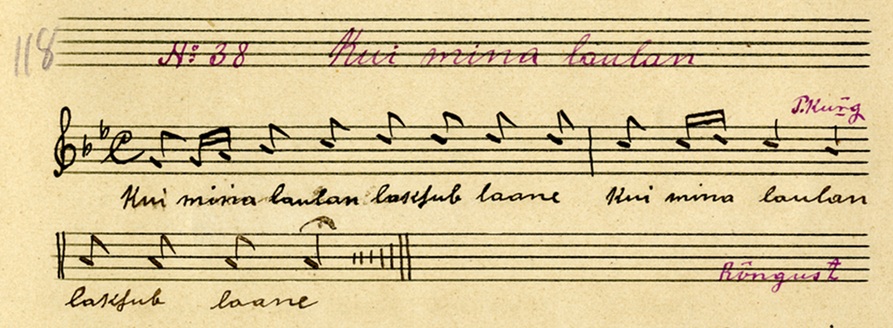 118
№ 38 Kui mina laulan
P. Kurg
Kui mina laulan laksub laane Kui mina laulan
laksub laane
Rõngust